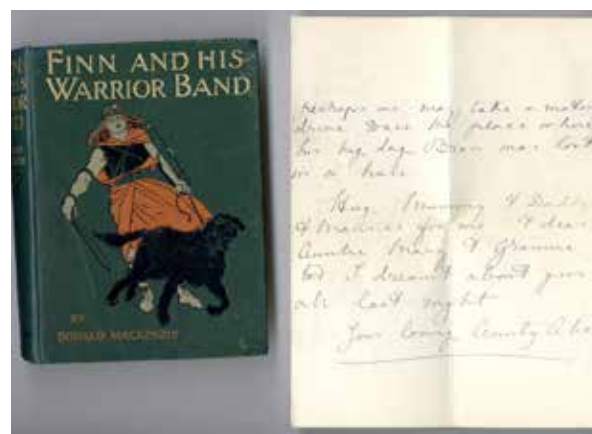 FINN AND HIS
WARRIOR BAND
BY
DONALD MACKENZIE
perhaps we may take a motor
drive past the place where
his big dog Bran was lost
in a
Hug Mummy & Daddy
& for me & dear
Auntie Mary & Grannie
I dreamt about you
all last night
Your loving Aunty